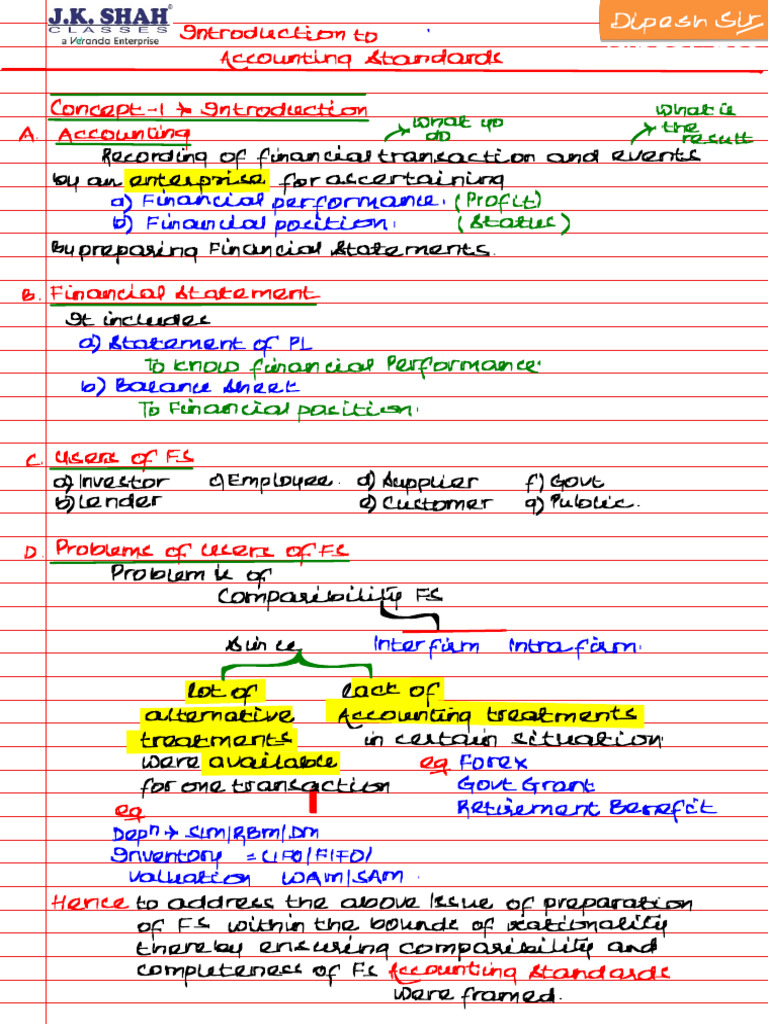 J.K. SHAH®
CLASSES
a Veranda Enterprise
Dipesh Sir
Introduction to
Accounting Standards
Concept-1 → Introduction
A. Accounting
What you do
What is the result
Recording of financial transaction and events
by an enterprise for ascertaining
a) Financial performance. (Profit)
b) Financial position. (Status)
By preparing Financial Statements.
B. Financial Statement
It includes
a) Statement of PL
To know financial Performance.
b) Balance Sheet
To Financial position.
C. Users of FS
a) Investor c) Employee. d) Supplier f) Govt
b) Lender e) Customer g) Public.
D. Problems of users of FS
Problem is of
Comparibility FS
Since Interfirm Intra firm.
lot of lack of
alternative Accounting treatments
treatments in certain situation.
were available eg Forex
for one transaction Govt Grant
eg Retirement Benefit
Depn → SLM/RBM/DM
Inventory = LIFO/FIFO/
valuation WAM/SAM.
Hence to address the above Issue of preparation
of FS within the bounds of rationality
thereby ensuring comparibility and
completeness of FS Accounting Standards
were framed.